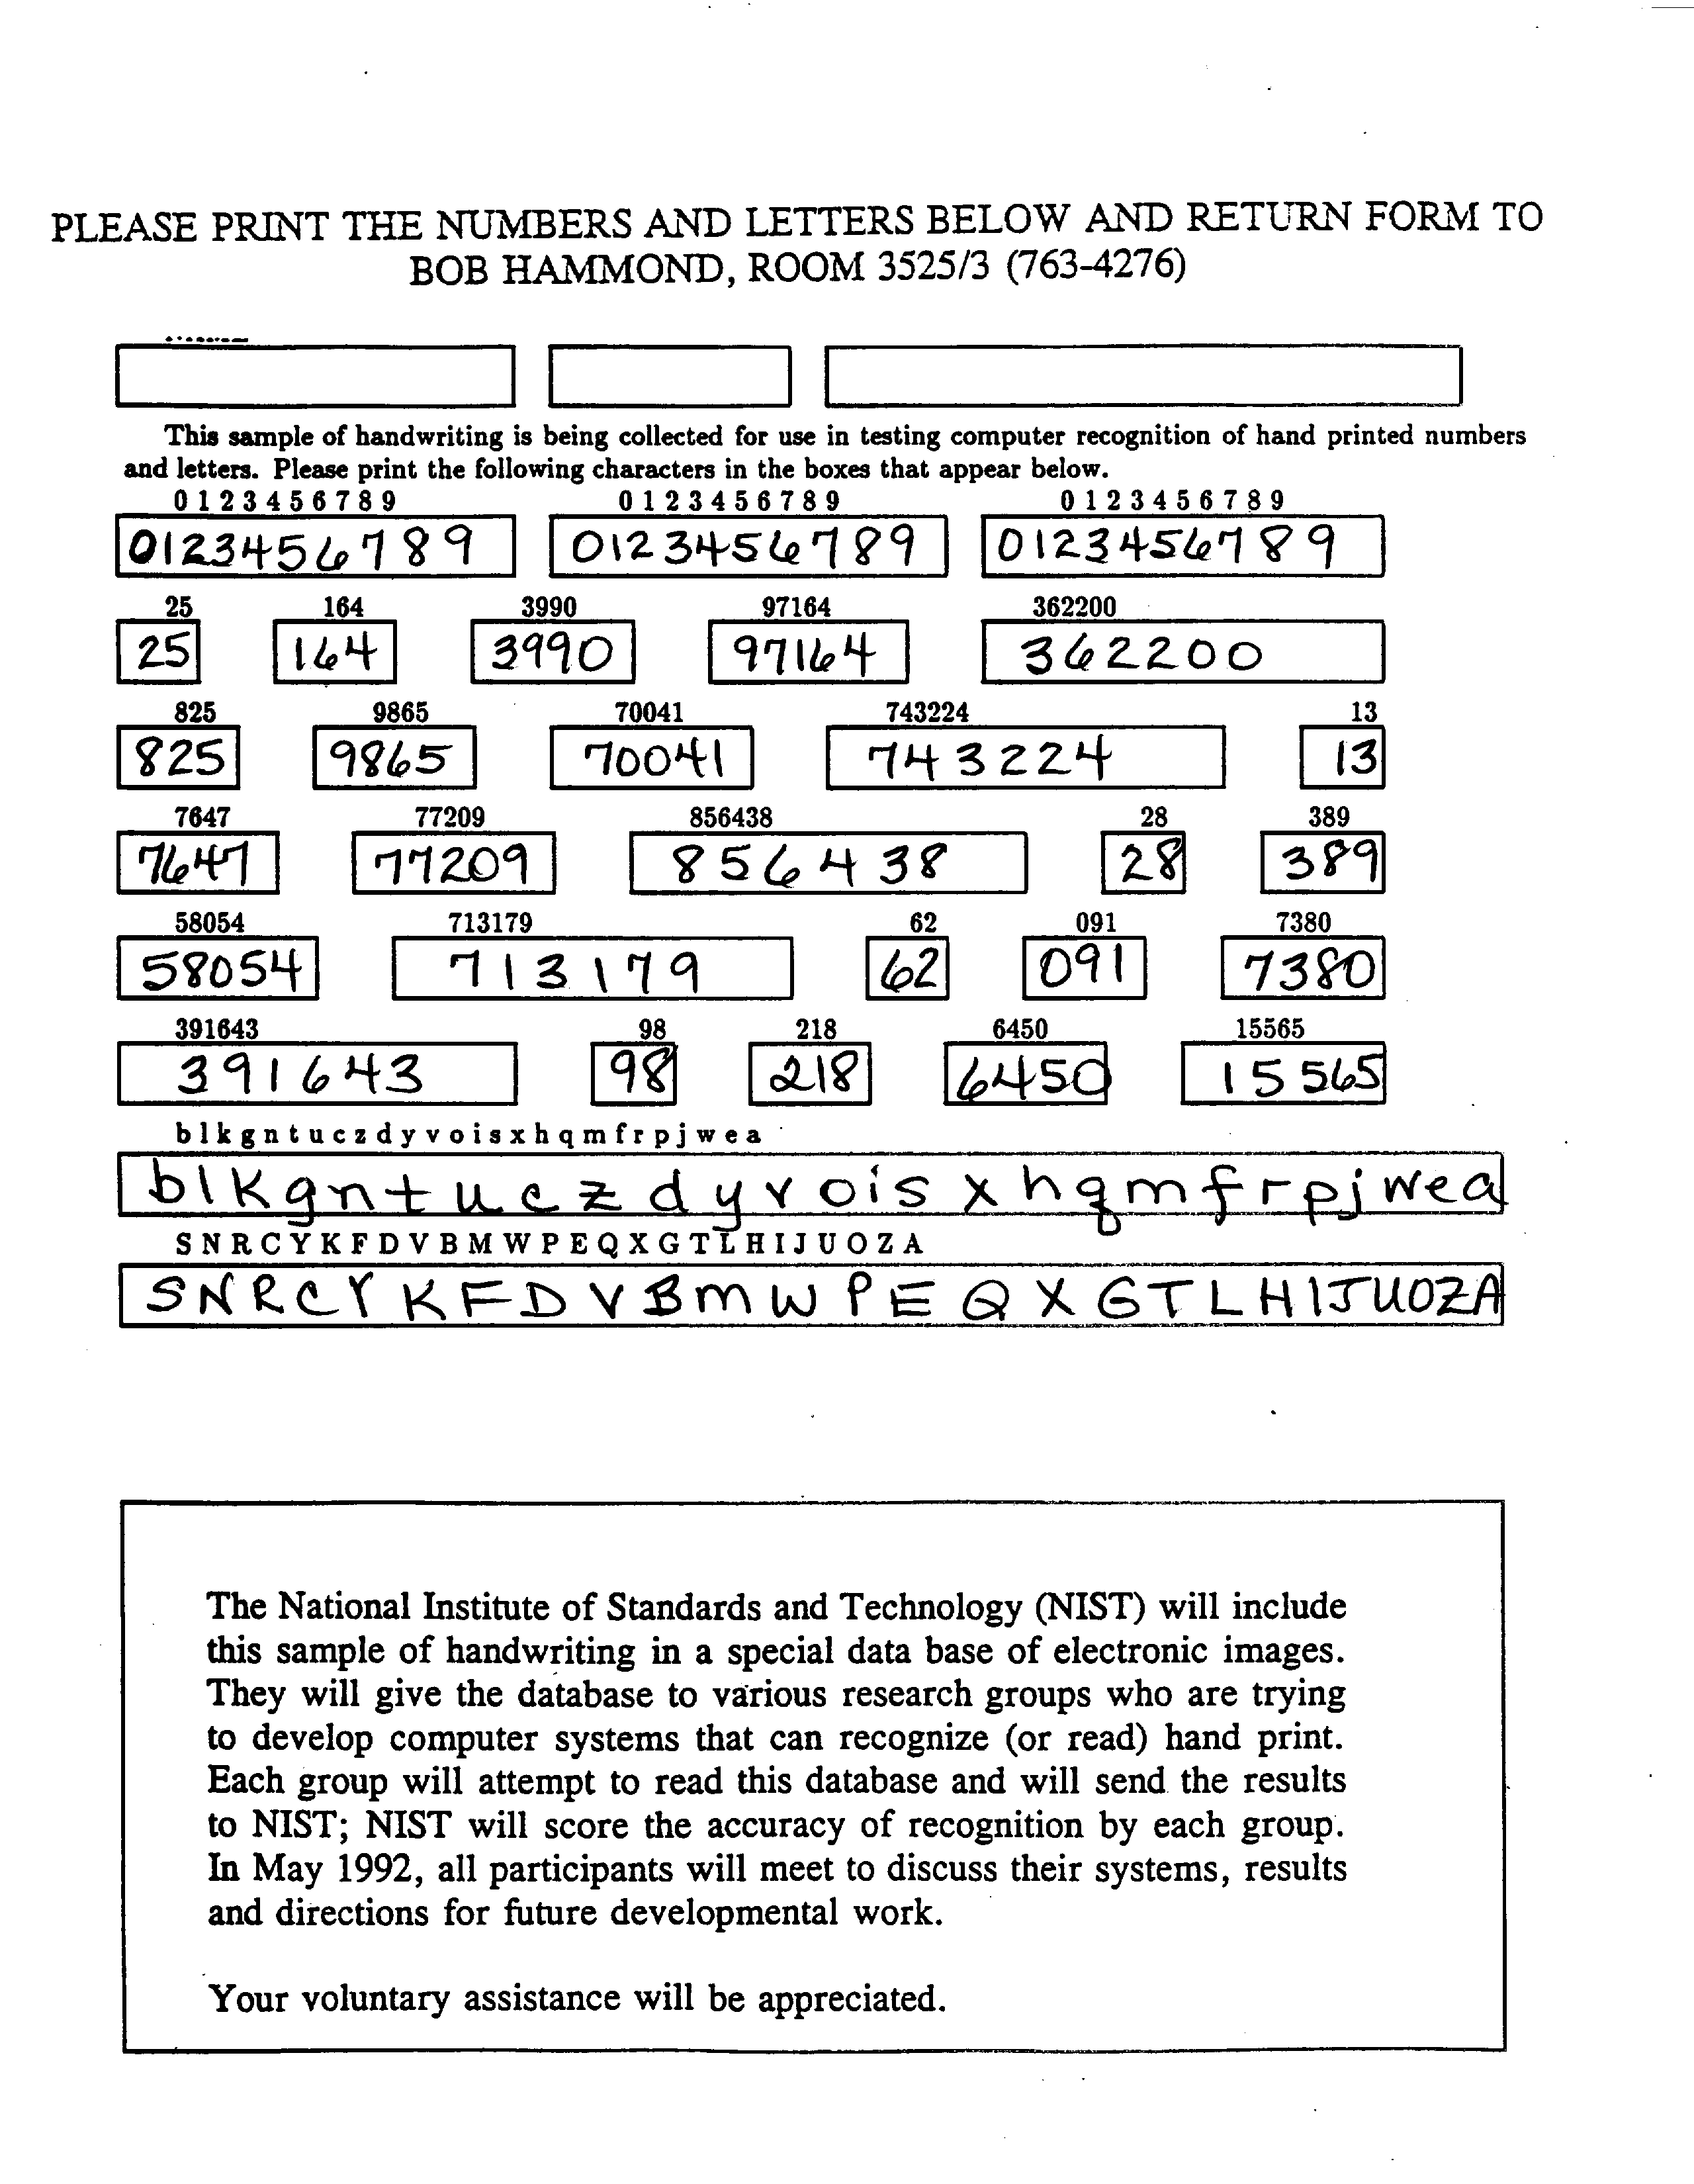 PLEASE PRINT THE NUMBERS AND LETTERS BELOW AND RETURN FORM TO
BOB HAMMOND, ROOM 3525/3 (763-4276)
This sample of handwriting is being collected for use in testing computer recognition of hand printed numbers
and letters. Please print the following characters in the boxes that appear below.
0 1 2 3 4 5 6 7 8 9 0 1 2 3 4 5 6 7 8 9 0 1 2 3 4 5 6 7 8 9
0123456789 0123456789 0123456789
25 164 3990 97164 362200
25 164 3990 97164 362200
825 9865 70041 743224 13
825 9865 70041 743224 13
7647 77209 856438 28 389
7647 77209 856438 28 389
58054 713179 62 091 7380
58054 713179 62 091 7380
391643 98 218 6450 15565
391643 98 218 6450 15565
b l k g n t u c z d y v o i s x h q m f r p j w e a
b l k g n t u c z d y v o i s x h q m f r p j w e a
S N R C Y K F D V B M W P E Q X G T L H I J U O Z A
S N R C Y K F D V B M W P E Q X G T L H I J U O Z A
The National Institute of Standards and Technology (NIST) will include
this sample of handwriting in a special data base of electronic images.
They will give the database to various research groups who are trying
to develop computer systems that can recognize (or read) hand print.
Each group will attempt to read this database and will send the results
to NIST; NIST will score the accuracy of recognition by each group.
In May 1992, all participants will meet to discuss their systems, results
and directions for future developmental work.
Your voluntary assistance will be appreciated.